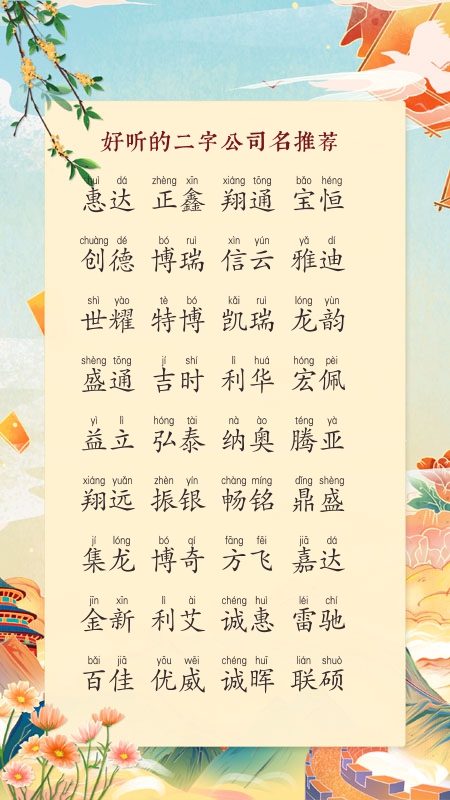 好听的二字公司名推荐
huì dá zhèng xīn xiáng tōng bǎo héng
惠达 正鑫 翔通 宝恒
chuàng dé bó ruì xìn yún yǎ dí
创德 博瑞 信云 雅迪
shì yào tè bó kǎi ruì lóng yùn
世耀 特博 凯瑞 龙韵
shèng tōng jí shí lì huá hóng pèi
盛通 吉时 利华 宏佩
yì lì hóng tài nà ào téng yà
益立 弘泰 纳奥 腾亚
xiáng yuǎn zhèn yín chàng míng dǐng shèng
翔远 振银 畅铭 鼎盛
jí lóng bó qí fāng fēi jiā dá
集龙 博奇 方飞 嘉达
jīn xīn lì ài chéng huì léi chí
金新 利艾 诚惠 雷驰
bǎi jiā yōu wēi chéng huī lián shuò
百佳 优威 诚晖 联硕